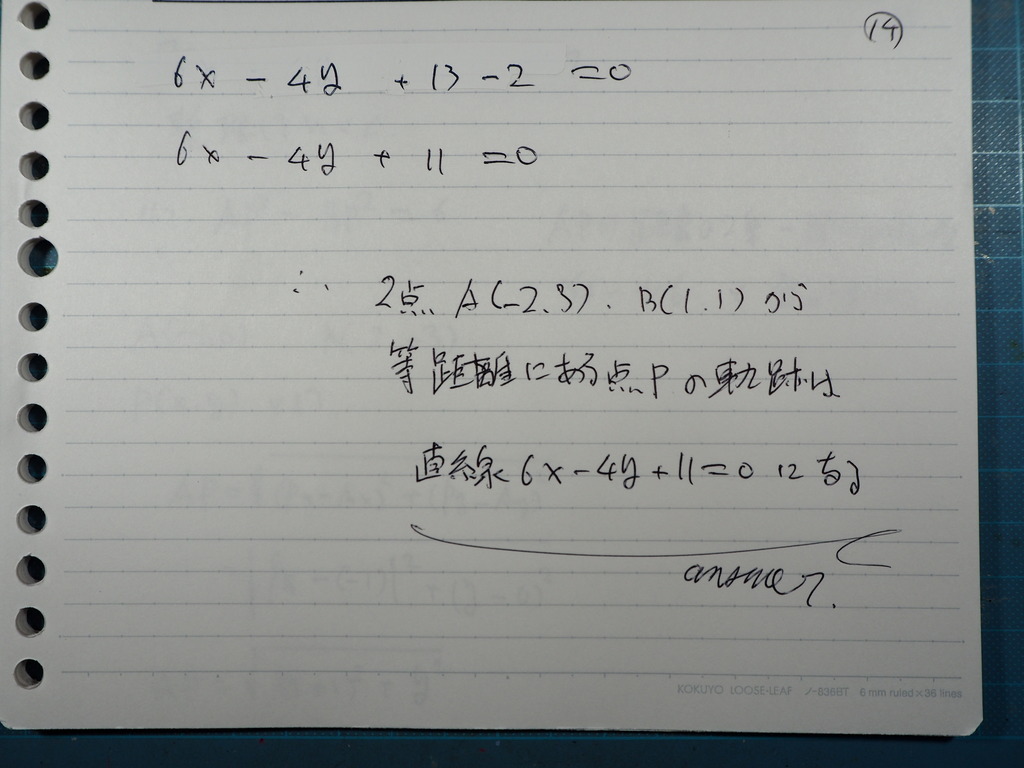 ⑭
6x - 4y + 13 - 2 = 0
6x - 4y + 11 = 0
∴ 2点 A(-2,3), B(1,1) から
等距離にある点Pの軌跡は
直線 6x - 4y + 11 = 0 になる
answer.
KOKUYO LOOSE-LEAF ノ-836BT 6 mm ruled×36 lines